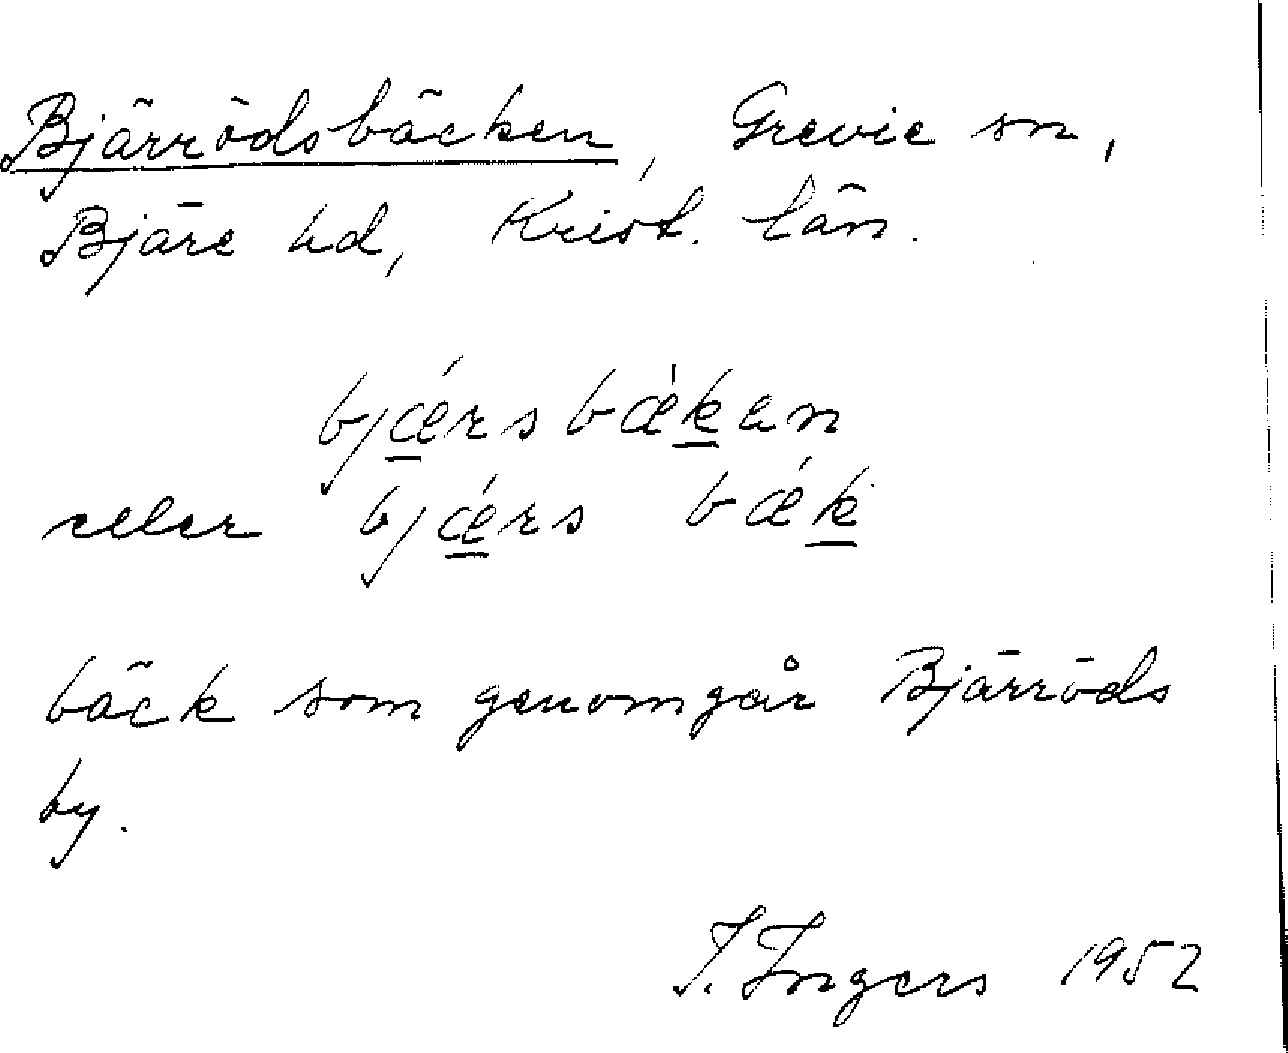 Bjärrödsbäcken, Grevie sn,
Bjäre hd, Krist. län.
bjǽrsbǽkan
eller bjǽrs bǽk
bäck som genomgår Bjärröds
by.
I. Ingers 1952